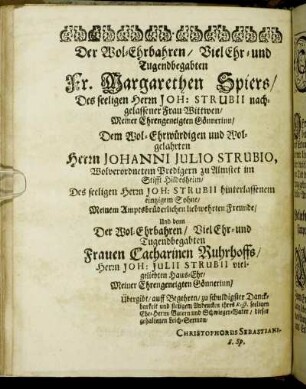 Der Wol-Ehrbahren/ Viel Ehr- und
Tugendbegabten
Fr. Margarethen Spiers/
Des seeligen Herrn JOH: STRUBII nach-
gelassener Frau Wittwen/
Meiner Ehrengeneigten Gönnerinn/
Dem Wol-Ehrwürdigen und Wol-
gelahrten
Herrn JOHANNI JULIO STRUBIO,
Wolverordnetem Predigern zu Almstet im
Stifft Hildesheim/
Des seeligen Herrn JOH: STRUBII hinterlassenem
einzigem Sohne/
Meinem Amptsbrüderlichen liebwehrten Freunde/
Und denn
Der Wol-Ehrbahren/ Viel Ehr- und
Tugendbegabten
Frauen Catharinen Ruhrhoffs/
Herrn JOH: JULII STRUBII viel-
geliebten Haus-Ehr/
Meiner Ehrengeneigten Gönnerinn/
Übergibt/ auff Begehren/ zu schuldigster Danck-
barkeit und stetigem Andencken ihres seeligen
Ehe-Herrn Vatern und Schwieger-Vater/ diesen
gehaltenen Leich-Sermon/
CHRISTOPHORUS SEBASTIANI